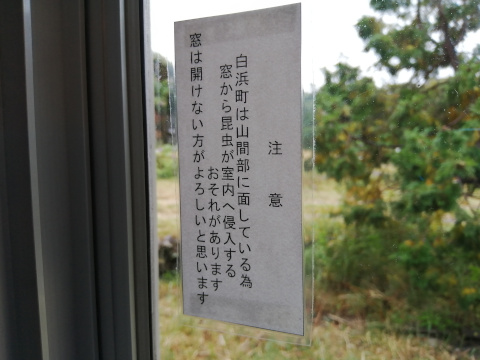 注意
白浜町は山間部に面している為
窓から昆虫が室内へ侵入する
おそれがあります
窓は開けない方がよろしいと思います